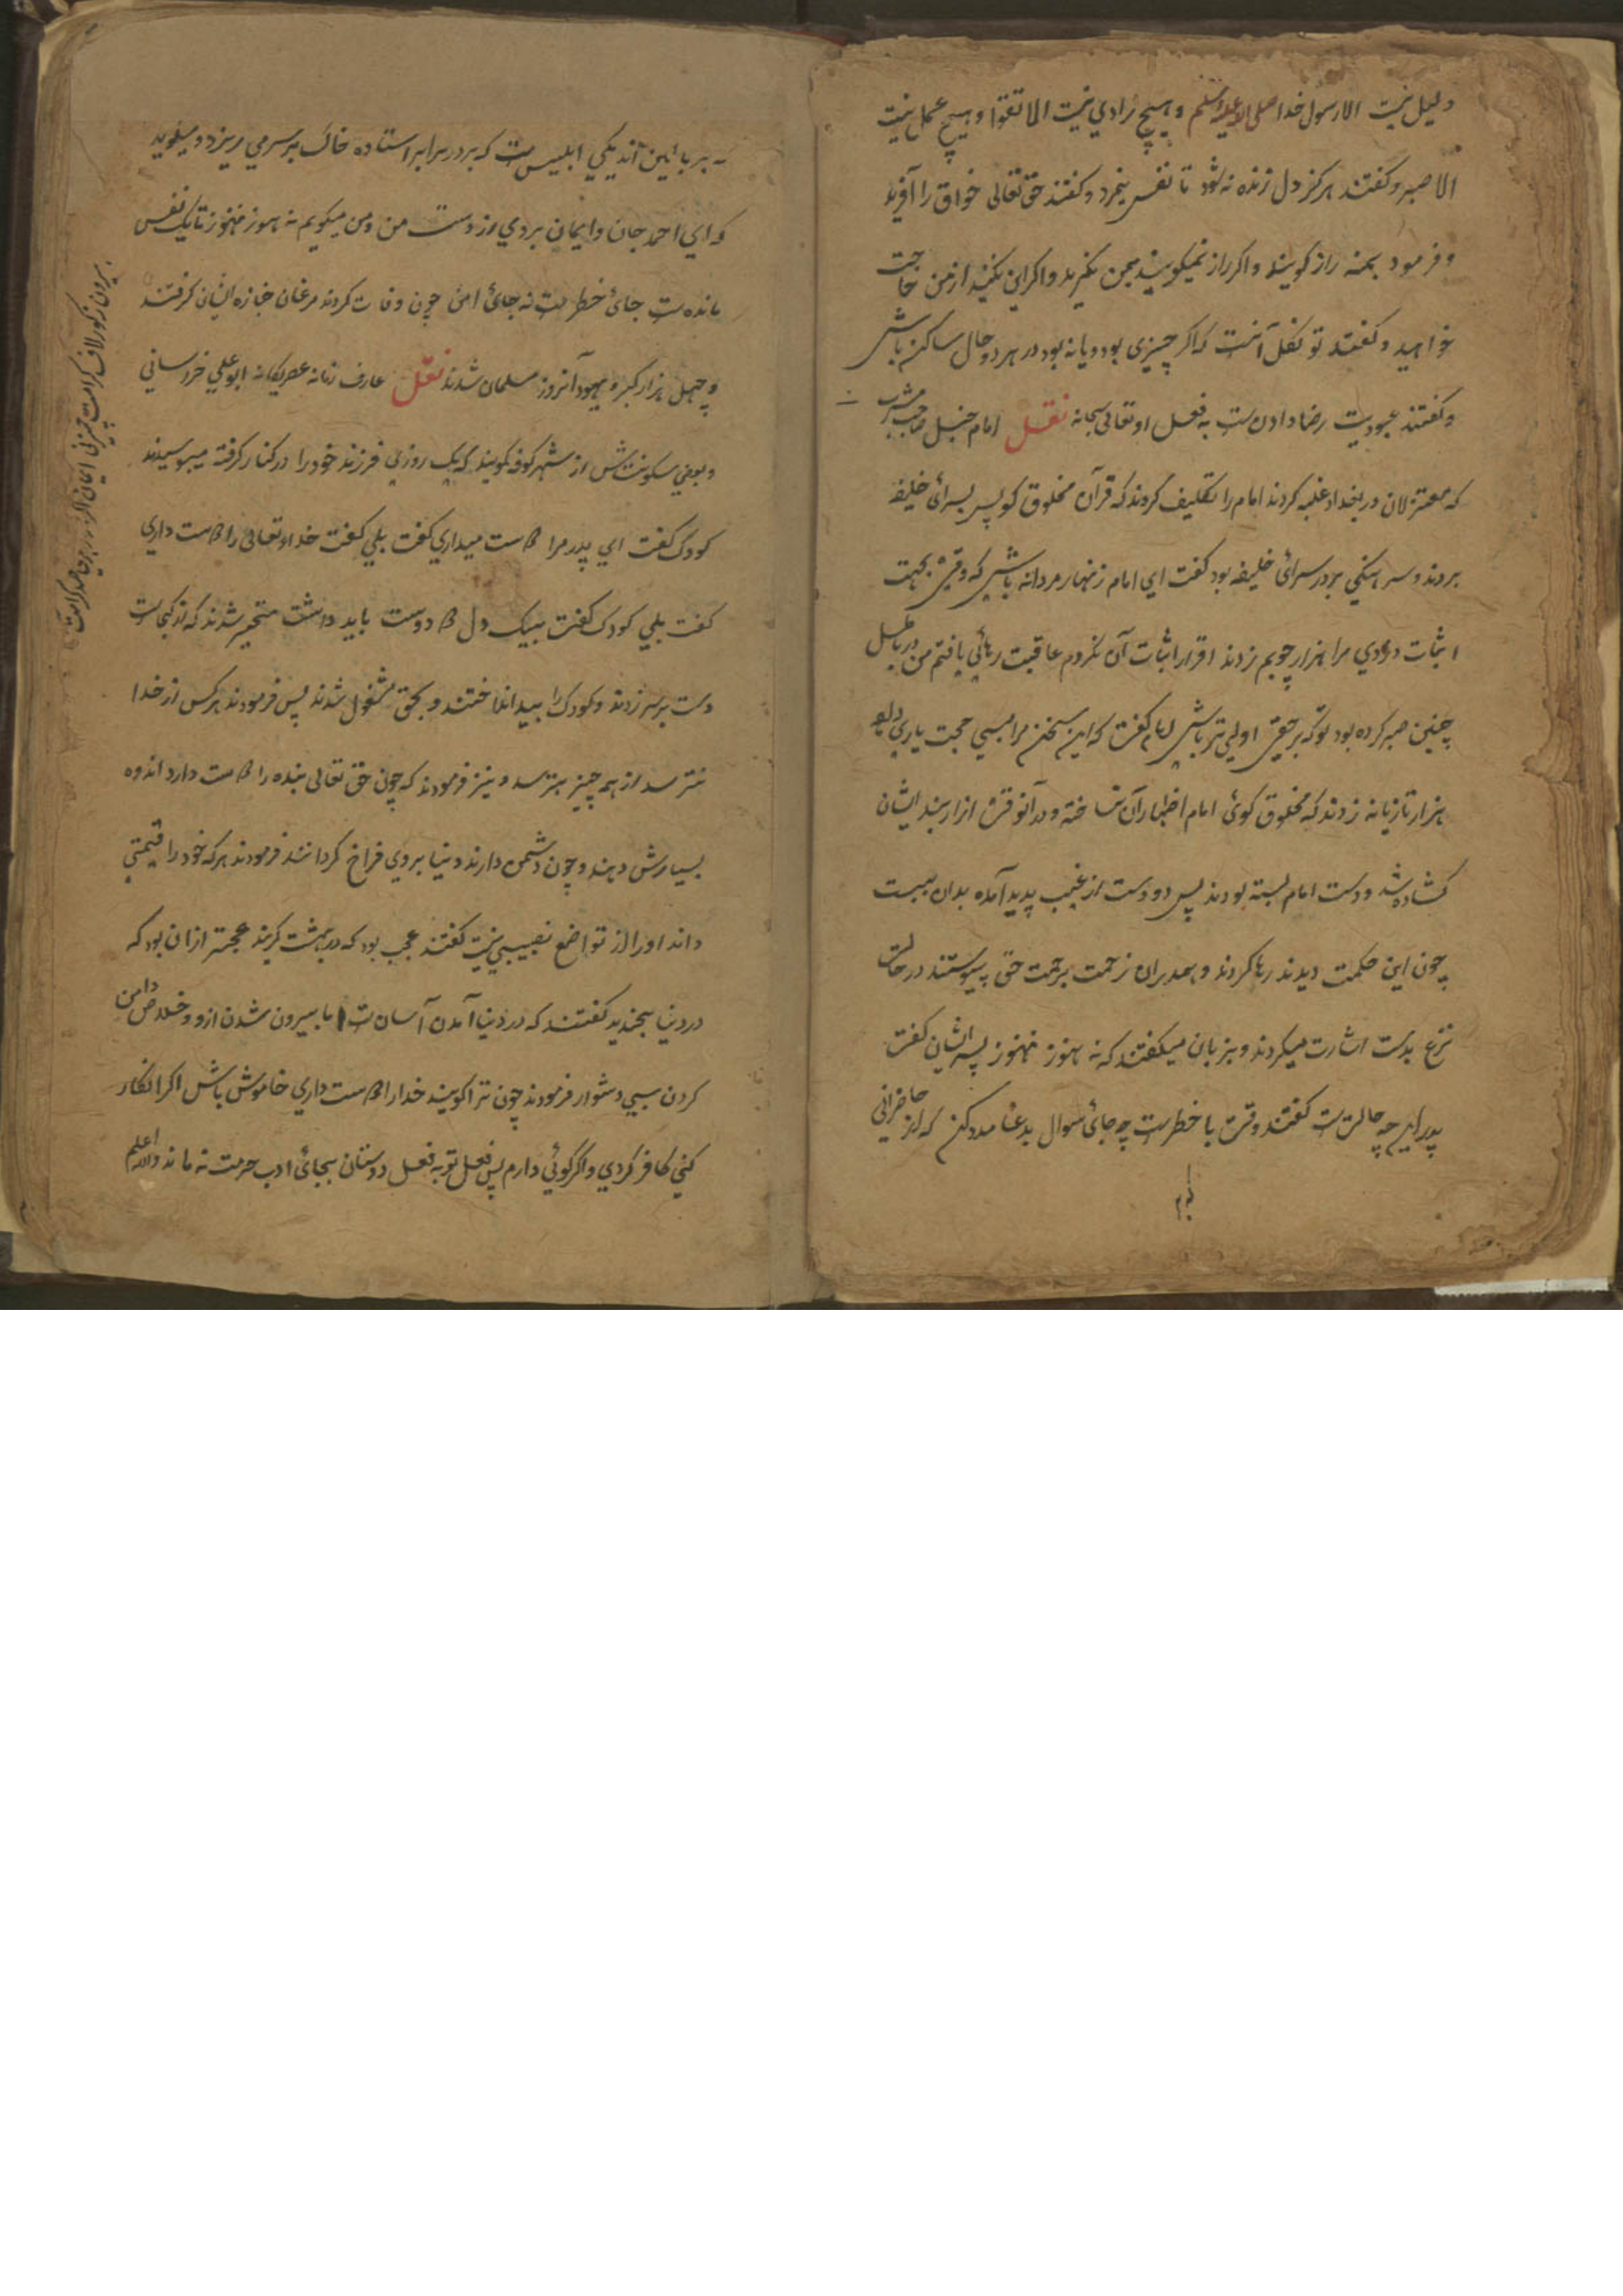 دلیل نیست الا رسول خدا صلی الله علیه وسلم و هیچ زادی نیست الا تقوا و هیچ عمل نیست
الا صبر و گفتند هرگز دل زنده نه شود تا نفس نمیرد و گفتند حق تعالی خواق را آفرید
و فرمود بمنه راز گویند و اگر راز نمیگویند بمن نگرید و اگر این نکنید از من حاجت
خواهید و گفتند توکل آنست که اگر چیزی بود و یا نه بود در هر دو حال ساکن باش
و گفتند عبودیت رضا دادن ست به فعل او تعالی سبحانه نقل امام حنبل صاحب مشرب
که معتزلان در بغداد غلبه کردند امام را تکلیف کردند که قرآن مخلوق گو پس بسرائ خلیفه
بردند و سرهنگی بر در سرائ خلیفه بود گفت ای امام زنهار مردانه باش که وقتی بجهت
اثبات دزدی مرا هزار چوبم زدند اقرار اثبات آن نکردم عاقبت رهائی یافتم من در باطل
چنین صبر کرده بود تو که بر حقی اولی تر باش امام گفت که این سخن مرا بسی حجت یاری داد
هزار تازیانه زدند که مخلوق گوئ امام اظهار آن نساخته و در آنوقت ازار بند ایشان
گشاده شد و دست امام بسته بودند پس دو دست از غیب پدید آمده بدان ببست
چون این حکمت دیدند رها کردند و بهمدران زحمت برحمت حق پیوستند در حالت
نزع بدست اشارت میکردند و بزبان میگفتند که نه هنوز نه هنوز پسر ایشان گفت
پدر این چه حالت ست گفتند وقت با خطر ست چه جائ سوال بدعا مدد کن که از حاضرانی
که بر بالین اند یکی ابلیس ست که بر در برابر استاده خاک بر سر می ریزد و میگوید
که ای احمد جان و ایمان بردی از دست من و من میگویم نه هنوز نه هنوز تا یک نفس
مانده ست جائ خطر ست نه جائ امن چون وفات کردند مرغان جنازه ایشان گرفتند
و چهل هزار گبر و یهود آنروز مسلمان شدند نقل عارف زمانه عصر یگانه ابو علی خراسانی
و بعضی سکونتش از شهر کوفه گویند که یک روزی فرزند خود را در کنار گرفته میبوسیدند
کودک گفت ای پدر مرا دوست میداری گفت بلی گفت خداوتعالی را دوست داری
گفت بلی کودک گفت بیک دل دو دوست باید داشت متحیر شدند که از کجاست
دست بر سر زدند و کودک را بینداختند و بحق مشغول شدند پس فرمودند هر کس از خدا
نترسد از همه چیز بترسد و نیز فرمودند که چون حق تعالی بنده را دوست دارد اندوه
بسیارش دهند و چون دشمن دارند دنیا بروی فراخ گردانند فرمودند هر که خود را قیمتی
داند او را از تواضع نصیبی نیست گفتند عجب بود که در بهشت گریند عجبتر ازان بود که
در دنیا بخندید گفتند که در دنیا آمدن آسان ست اما بیرون شدن ازو و خلاص دامن
کردن بسی دشوار فرمودند چون ترا گویند خدا را دوست داری خاموش باش اگر انکار
کنی کافر گردی و اگر گوئی دارم پس فعل تو به فعل دوستان بجائ ادب حرمت نه ماند والله اعلم